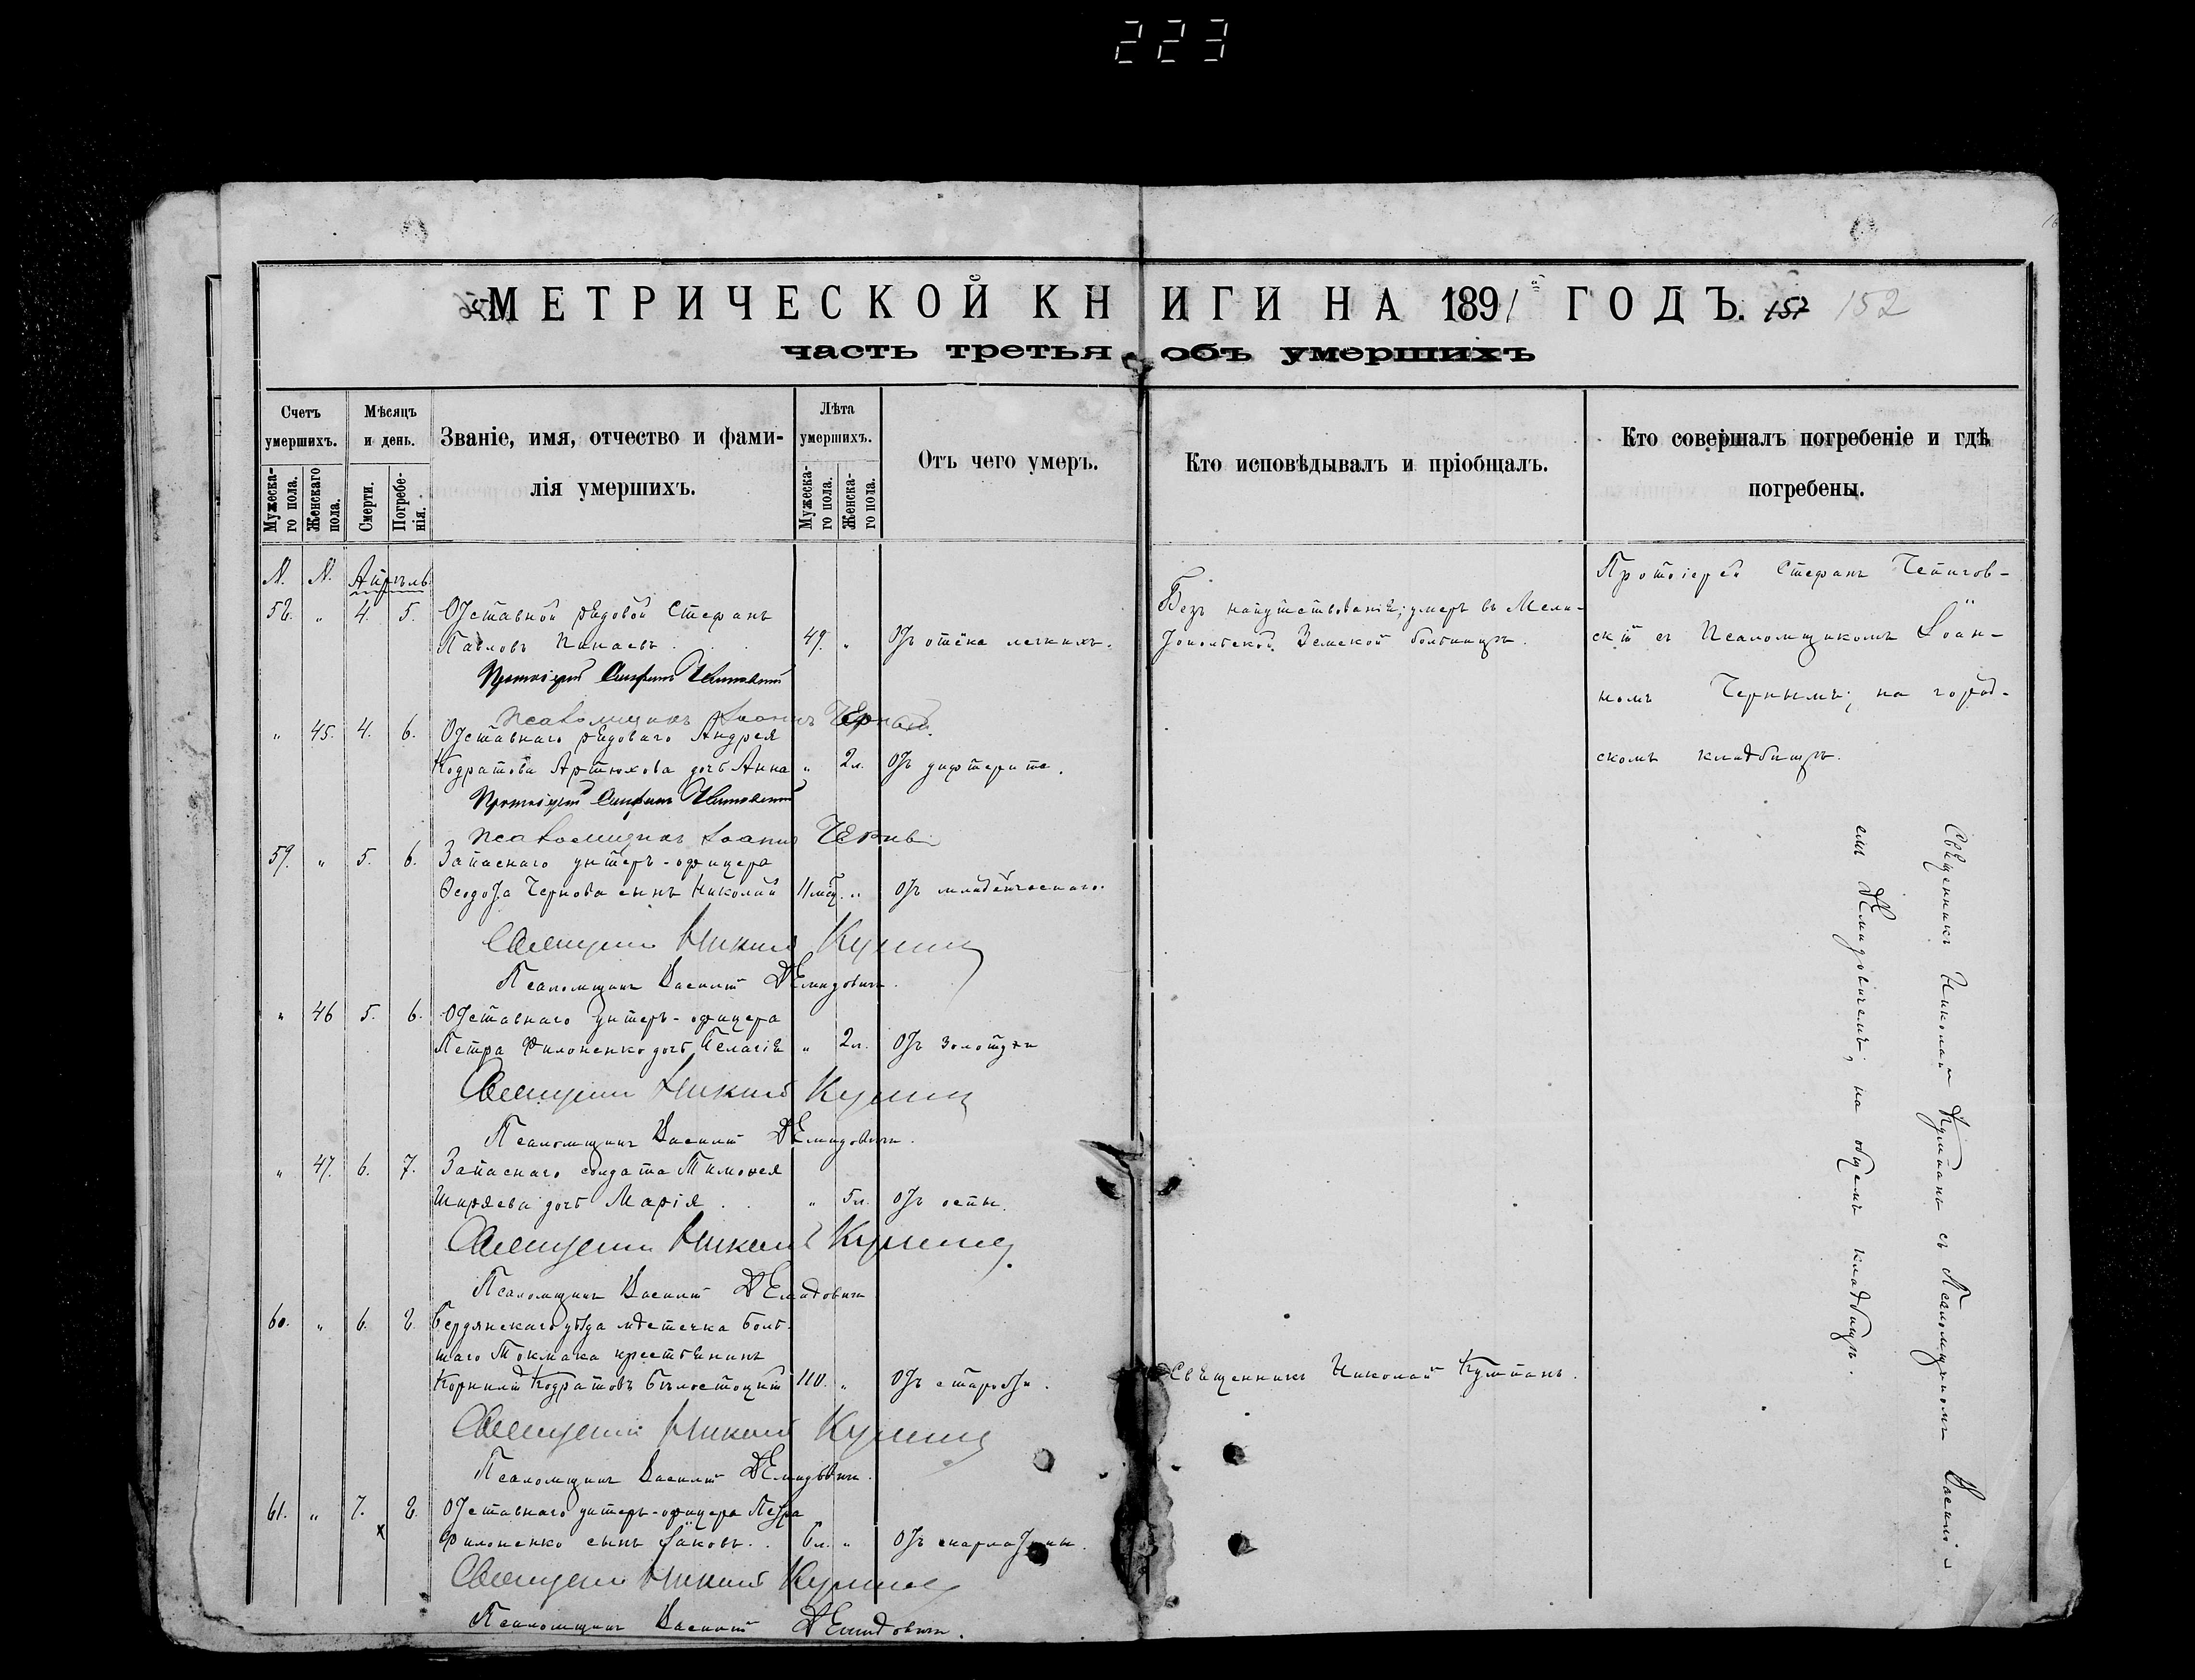 223
МЕТРИЧЕСКОЙ КНИГИ НА 1891 ГОДЪ. 157 152
часть третья объ умершихъ
Счетъ умершихъ.
Мужескаго пола.
Женскаго пола.
Мѣсяцъ и день.
Смерти.
Погребенія.
Званіе, имя, отчество и фамилія умершихъ.
Лѣта умершихъ.
Мужескаго пола.
Женскаго пола.
Отъ чего умеръ.
Кто исповѣдывалъ и пріобщалъ.
Кто совершалъ погребеніе и гдѣ погребены.
N. N. Апрѣль
58. " 4. 5. Отставной рядовой Стефанъ
Павловъ 49. " Отъ отёка легкихъ.
Безъ напутствованія; умеръ въ Мели-
топольской Земской больницѣ.
Протоіерей Стефанъ
скій съ Псаломщикомъ Іоан-
номъ Чернымъ; на город-
скомъ кладбищѣ.
Протоіерей Стефанъ
Псаломщикъ Іоаннъ Черный.
" 45. 4. 6. Отставнаго рядоваго Андрея
Кодратова Артюхова дочь Анна " 2л. Отъ дифтерита.
Протоіерей Стефанъ
Псаломщикъ Іоаннъ Черный
59. " 5. 6. Запаснаго унтеръ-офицера
Ѳеодота Чернова сынъ Николай 11мѣс. " Отъ младенческаго.
Священникъ Николай
Псаломщикъ Василій Демидовичъ.
" 46 5. 6. Отставнаго унтеръ-офицера
Петра Филоненко дочь Пелагія " 2л. Отъ золотухи
Священникъ Николай
Псаломщикъ Василій Демидовичъ.
" 47. 6. 7. Запаснаго солдата Тимоѳея
Ширяева дочь Марія " 5л. Отъ оспы.
Священникъ Николай
Псаломщикъ Василій Демидовичъ
60. " 6. 8. Бердянскаго уѣзда мѣстечка Боль-
шаго Токмака крестьянинъ
Корнилій Кодратовъ Бѣлостоцкій 110. " Отъ старости.
Священникъ Николай
Священникъ Николай
Псаломщикъ Василій Демидовичъ.
61. " 7. 8. Отставнаго унтеръ-офицера Петра
Филоненко сынъ Іаковъ. 6л. " Отъ скарлатины.
Священникъ Николай
Псаломщикъ Василій Демидовичъ.
Священникъ Николай съ Псаломщикомъ Василі-
емъ Демидовичемъ; на общемъ кладбищѣ.